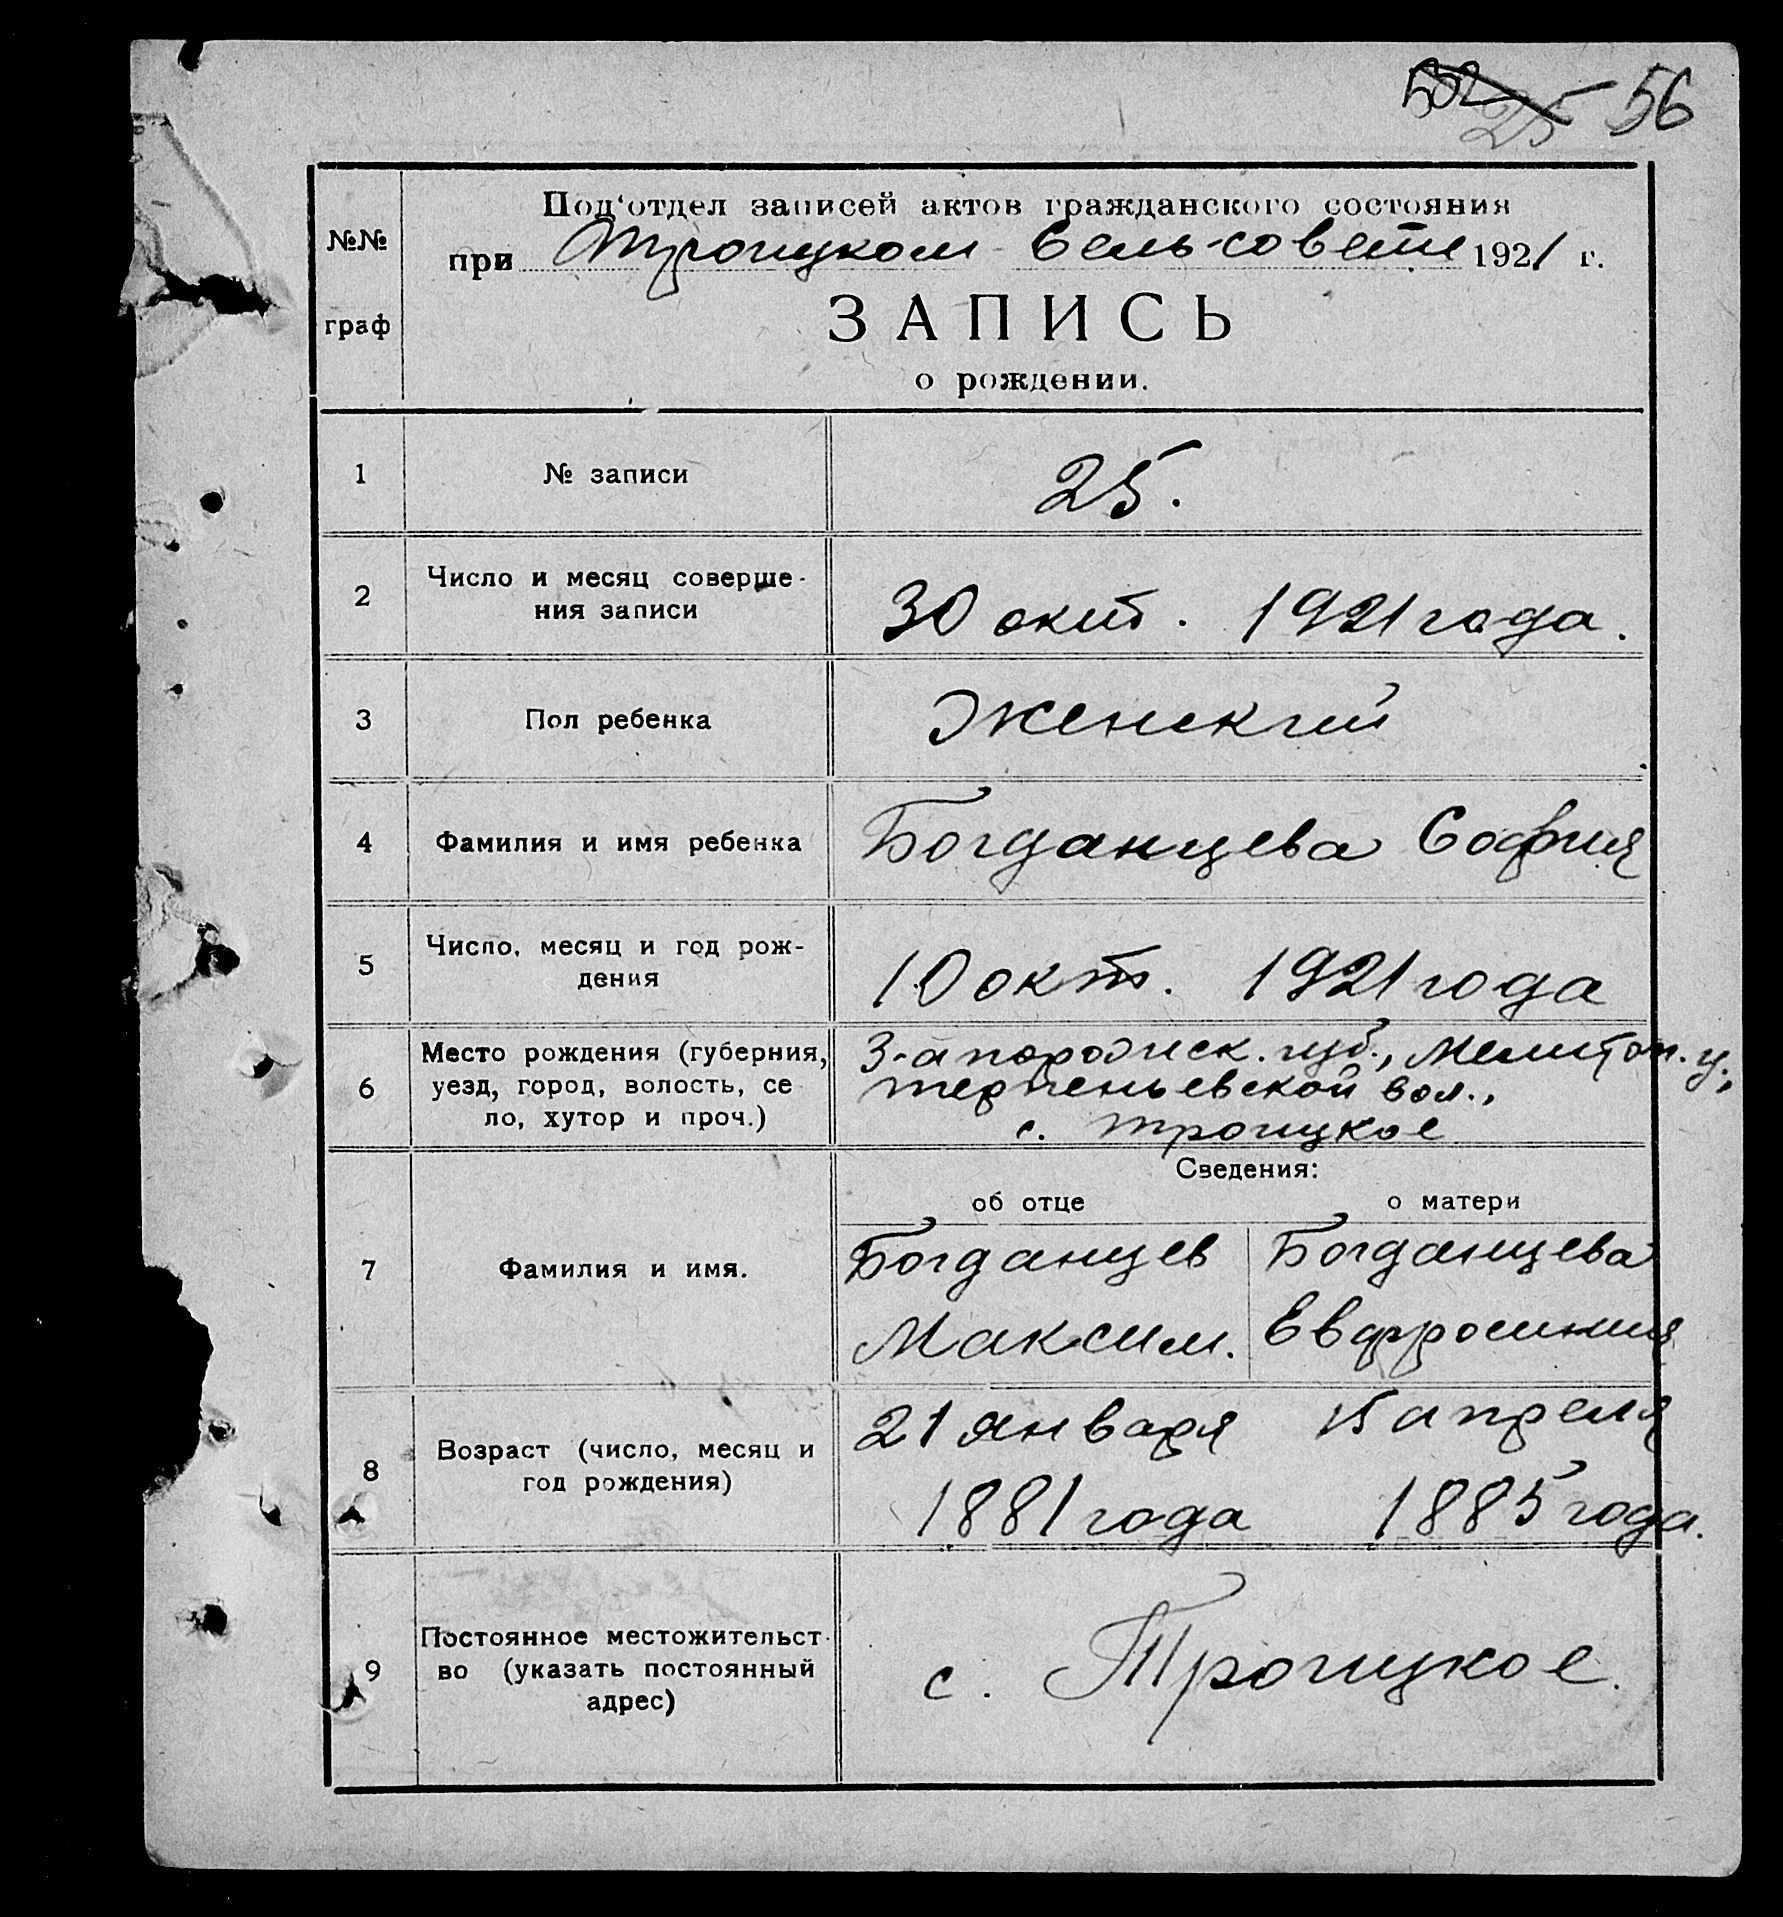 25 56
Под‘отдел записей актов гражданского состояния
№№ при Троицком Сель-совете 1921 г.
граф ЗАПИСЬ
о рождении.
1 № записи 25.
2 Число и месяц соверше-
ния записи 30 окт. 1921 года.
3 Пол ребенка Женский
4 Фамилия и имя ребенка Богданцева София
5 Число, месяц и год рож-
дения 10 окт. 1921 года
Место рождения (губерния, З-апорожск. губ., Мелитоп. у.,
6 уезд, город, волость, се терпеньевской вол.,
ло, хутор и проч.) с. троицкое
Сведения:
об отце о матери
7 Фамилия и имя. Богданцев Богданцева
Максим. Евфросиния
8 Возраст (число, месяц и 21 января 15 апреля
год рождения) 1881 года 1885 года.
Постоянное местожительст-
9 во (указать постоянный с. Троицкое.
адрес)